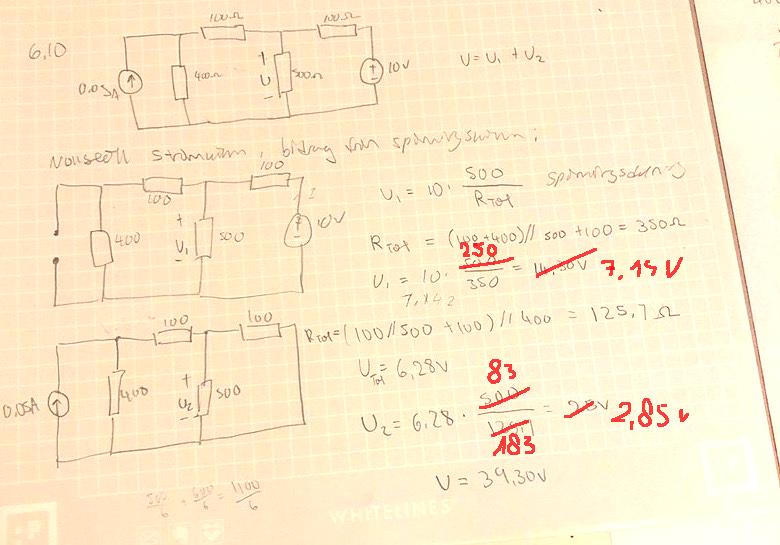 6,10
100Ω
100Ω
0.05A
400Ω
+
U
-
500Ω
+
-
10V
U = U₁ + U₂
Nollställ strömkällan, bidrag från spänningskällan:
100
100
400
+
U₁
-
500
+
-
10V
U₁ = 10 · 500 / RTot
RTot = (100+400) // 500 + 100 = 350Ω
250
U₁ = 10 · 500 / 350 = 14,30V 7.14V
7,142
100
100
0.05A
400
+
U₂
-
500
RTot = (100 // 500 + 100) // 400 = 125,7Ω
UTot = 6,28V
83
U₂ = 6,28 · 500 / 125,7 = 25V 2,85V
183
U = 39,30V
500/6 + 600/6 = 1100/6
WHITELINES